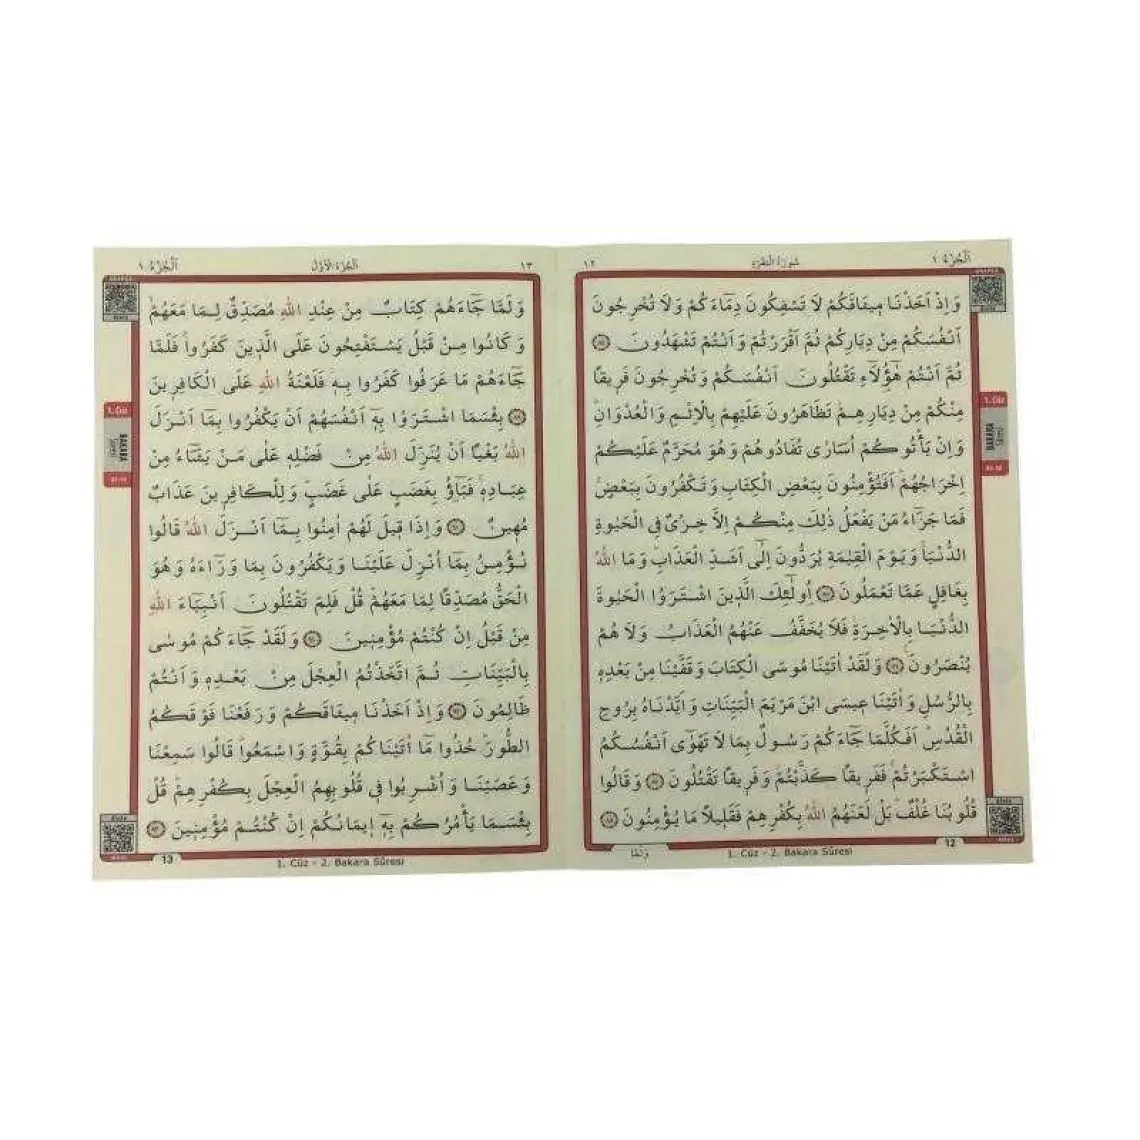 اَلْجُزْءُ ١
سُورَةُ الْبَقَرَةِ
١٢
وَاِذْ اَخَذْنَا مٖيثَاقَكُمْ لَا تَسْفِكُونَ دِمَٓاءَكُمْ وَلَا تُخْرِجُونَ
اَنْفُسَكُمْ مِنْ دِيَارِكُمْ ثُمَّ اَقْرَرْتُمْ وَاَنْتُمْ تَشْهَدُونَ ﴿٨٤﴾
ثُمَّ اَنْتُمْ هٰٓؤُ۬لَٓاءِ تَقْتُلُونَ اَنْفُسَكُمْ وَتُخْرِجُونَ فَرٖيقاً
مِنْكُمْ مِنْ دِيَارِهِمْ تَظَاهَرُونَ عَلَيْهِمْ بِالْاِثْمِ وَالْعُدْوَانِ
وَاِنْ يَأْتُوكُمْ اُسَارٰى تُفَادُوهُمْ وَهُوَ مُحَرَّمٌ عَلَيْكُمْ
اِخْرَاجُهُمْ اَفَتُؤْمِنُونَ بِبَعْضِ الْكِتَابِ وَتَكْفُرُونَ بِبَعْضٍ
فَمَا جَزَٓاءُ مَنْ يَفْعَلُ ذٰلِكَ مِنْكُمْ اِلَّا خِزْيٌ فِي الْحَيٰوةِ
الدُّنْيَا وَيَوْمَ الْقِيٰمَةِ يُرَدُّونَ اِلٰٓى اَشَدِّ الْعَذَابِ وَمَا اللّٰهُ
بِغَافِلٍ عَمَّا تَعْمَلُونَ ﴿٨٥﴾ اُو۬لٰٓئِكَ الَّذٖينَ اشْتَرَوُا الْحَيٰوةَ
الدُّنْيَا بِالْاٰخِرَةِ فَلَا يُخَفَّفُ عَنْهُمُ الْعَذَابُ وَلَا هُمْ
يُنْصَرُونَ ﴿٨٦﴾ وَلَقَدْ اٰتَيْنَا مُوسَى الْكِتَابَ وَقَفَّيْنَا مِنْ بَعْدِهٖ
بِالرُّسُلِ وَاٰتَيْنَا عٖيسَى ابْنَ مَرْيَمَ الْبَيِّنَاتِ وَاَيَّدْنَاهُ بِرُوحِ
الْقُدُسِ اَفَكُلَّمَا جَٓاءَكُمْ رَسُولٌ بِمَا لَا تَهْوٰٓى اَنْفُسُكُمُ
اسْتَكْبَرْتُمْ فَفَرٖيقاً كَذَّبْتُمْ وَفَرٖيقاً تَقْتُلُونَ ﴿٨٧﴾ وَقَالُوا
قُلُوبُنَا غُلْفٌ بَلْ لَعَنَهُمُ اللّٰهُ بِكُفْرِهِمْ فَقَلٖيلاً مَا يُؤْمِنُونَ ﴿٨٨﴾
وَلَمَّا
1. Cüz - 2. Bakara Sûresi
12
1. Cüz
BAKARA
Sûresi
١٣
اَلْجُزْءُ الْاَوَّلُ
اَلْجُزْءُ ١
وَلَمَّا جَٓاءَهُمْ كِتَابٌ مِنْ عِنْدِ اللّٰهِ مُصَدِّقٌ لِمَا مَعَهُمْ
وَكَانُوا مِنْ قَبْلُ يَسْتَفْتِحُونَ عَلَى الَّذٖينَ كَفَرُوا فَلَمَّا
جَٓاءَهُمْ مَا عَرَفُوا كَفَرُوا بِهٖ فَلَعْنَةُ اللّٰهِ عَلَى الْكَافِرٖينَ
﴿٨٩﴾ بِئْسَمَا اشْتَرَوْا بِهٖٓ اَنْفُسَهُمْ اَنْ يَكْفُرُوا بِمَٓا اَنْزَلَ
اللّٰهُ بَغْياً اَنْ يُنَزِّلَ اللّٰهُ مِنْ فَضْلِهٖ عَلٰى مَنْ يَشَٓاءُ مِنْ
عِبَادِهٖ فَبَٓاؤُ۫ بِغَضَبٍ عَلٰى غَضَبٍ وَلِلْكَافِرٖينَ عَذَابٌ
مُهٖينٌ ﴿٩٠﴾ وَاِذَا قٖيلَ لَهُمْ اٰمِنُوا بِمَٓا اَنْزَلَ اللّٰهُ قَالُوا
نُؤْمِنُ بِمَٓا اُنْزِلَ عَلَيْنَا وَيَكْفُرُونَ بِمَا وَرَٓاءَهُ وَهُوَ
الْحَقُّ مُصَدِّقاً لِمَا مَعَهُمْ قُلْ فَلِمَ تَقْتُلُونَ اَنْبِيَٓاءَ اللّٰهِ
مِنْ قَبْلُ اِنْ كُنْتُمْ مُؤْمِنٖينَ ﴿٩١﴾ وَلَقَدْ جَٓاءَكُمْ مُوسٰى
بِالْبَيِّنَاتِ ثُمَّ اتَّخَذْتُمُ الْعِجْلَ مِنْ بَعْدِهٖ وَاَنْتُمْ
ظَالِمُونَ ﴿٩٢﴾ وَاِذْ اَخَذْنَا مٖيثَاقَكُمْ وَرَفَعْنَا فَوْقَكُمُ
الطُّورَ خُذُوا مَٓا اٰتَيْنَاكُمْ بِقُوَّةٍ وَاسْمَعُوا قَالُوا سَمِعْنَا
وَعَصَيْنَا وَاُشْرِبُوا فٖي قُلُوبِهِمُ الْعِجْلَ بِكُفْرِهِمْ قُلْ
بِئْسَمَا يَأْمُرُكُمْ بِهٖٓ اٖيمَانُكُمْ اِنْ كُنْتُمْ مُؤْمِنٖينَ ﴿٩٣﴾
13
1. Cüz - 2. Bakara Sûresi
1. Cüz
BAKARA
Sûresi